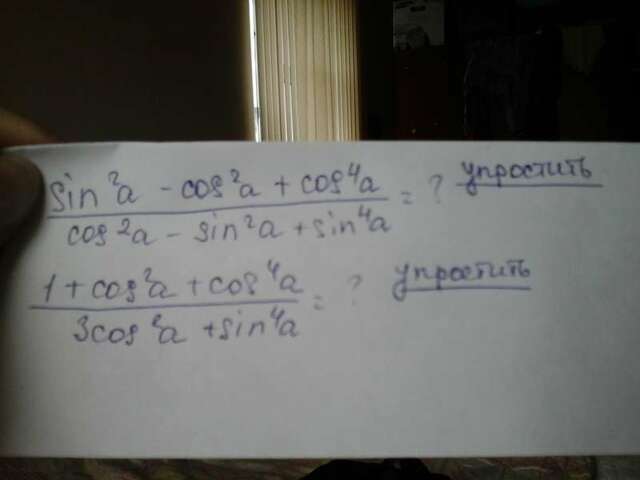 sin²a - cos²a + cos⁴a / cos²a - sin²a + sin⁴a = ? упростить
1 + cos²a + cos⁴a / 3cos²a + sin⁴a = ? упростить